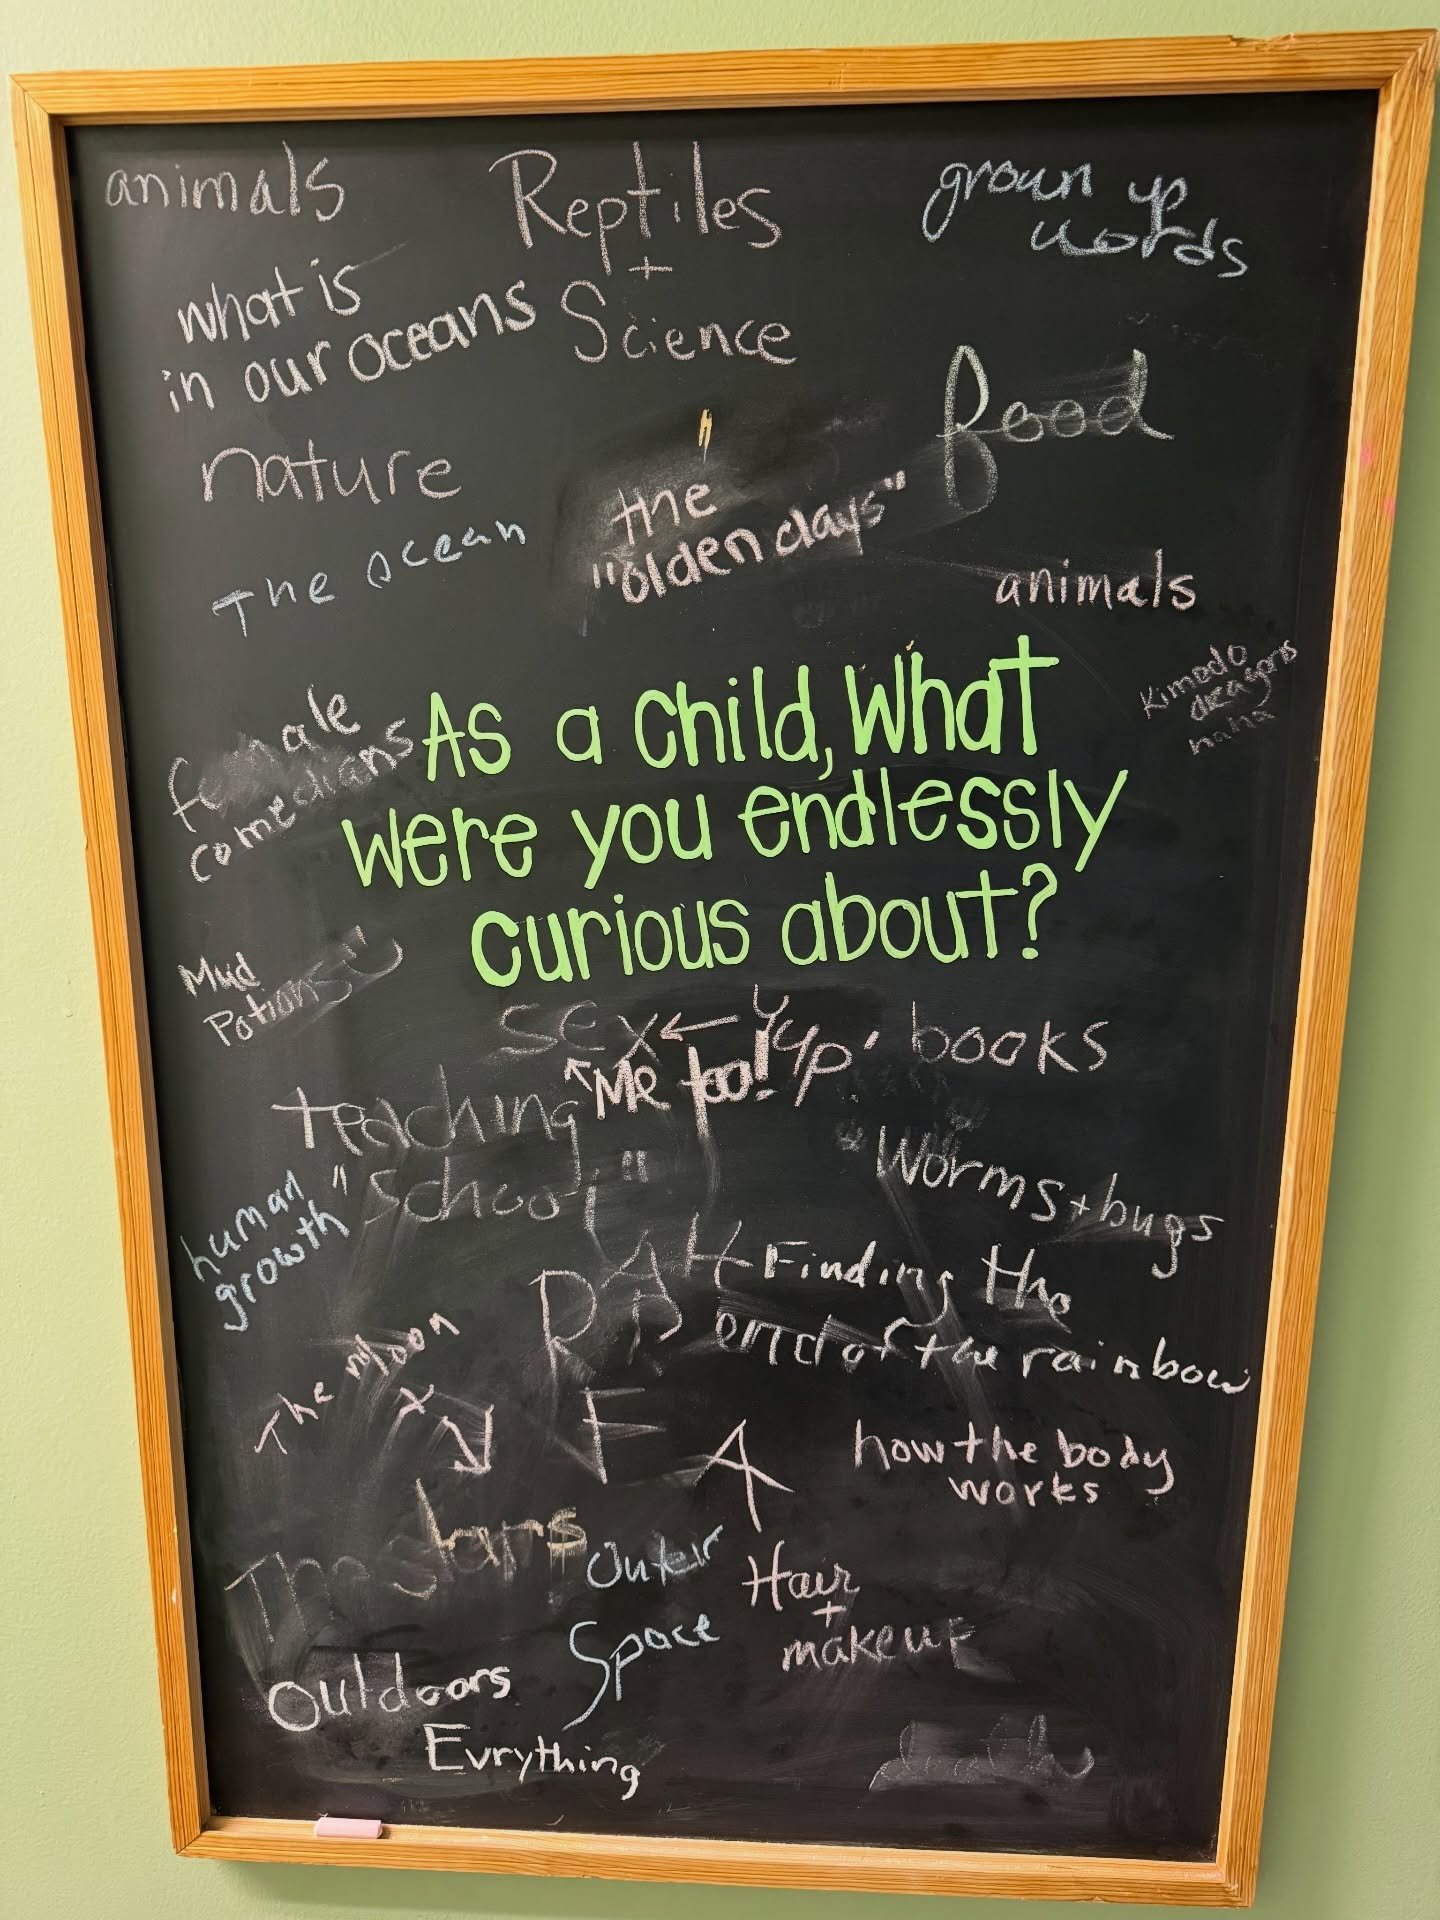 animals
Reptiles
+
Science
grown up
words
what is
in our oceans
food
nature
the
"olden days"
The ocean
animals
Kimodo
dragons
haha
female
comedians
As a Child, What
were you endlessly
curious about?
Mud
Potions
sex ← Yup!
↖ Me too!
books
teaching
"School"
worms + bugs
human
growth
Finding the
end of the rainbow
The moon
how the body
works
The stars
outer
space
Hair
+
makeup
Outdoors
Evrything
death